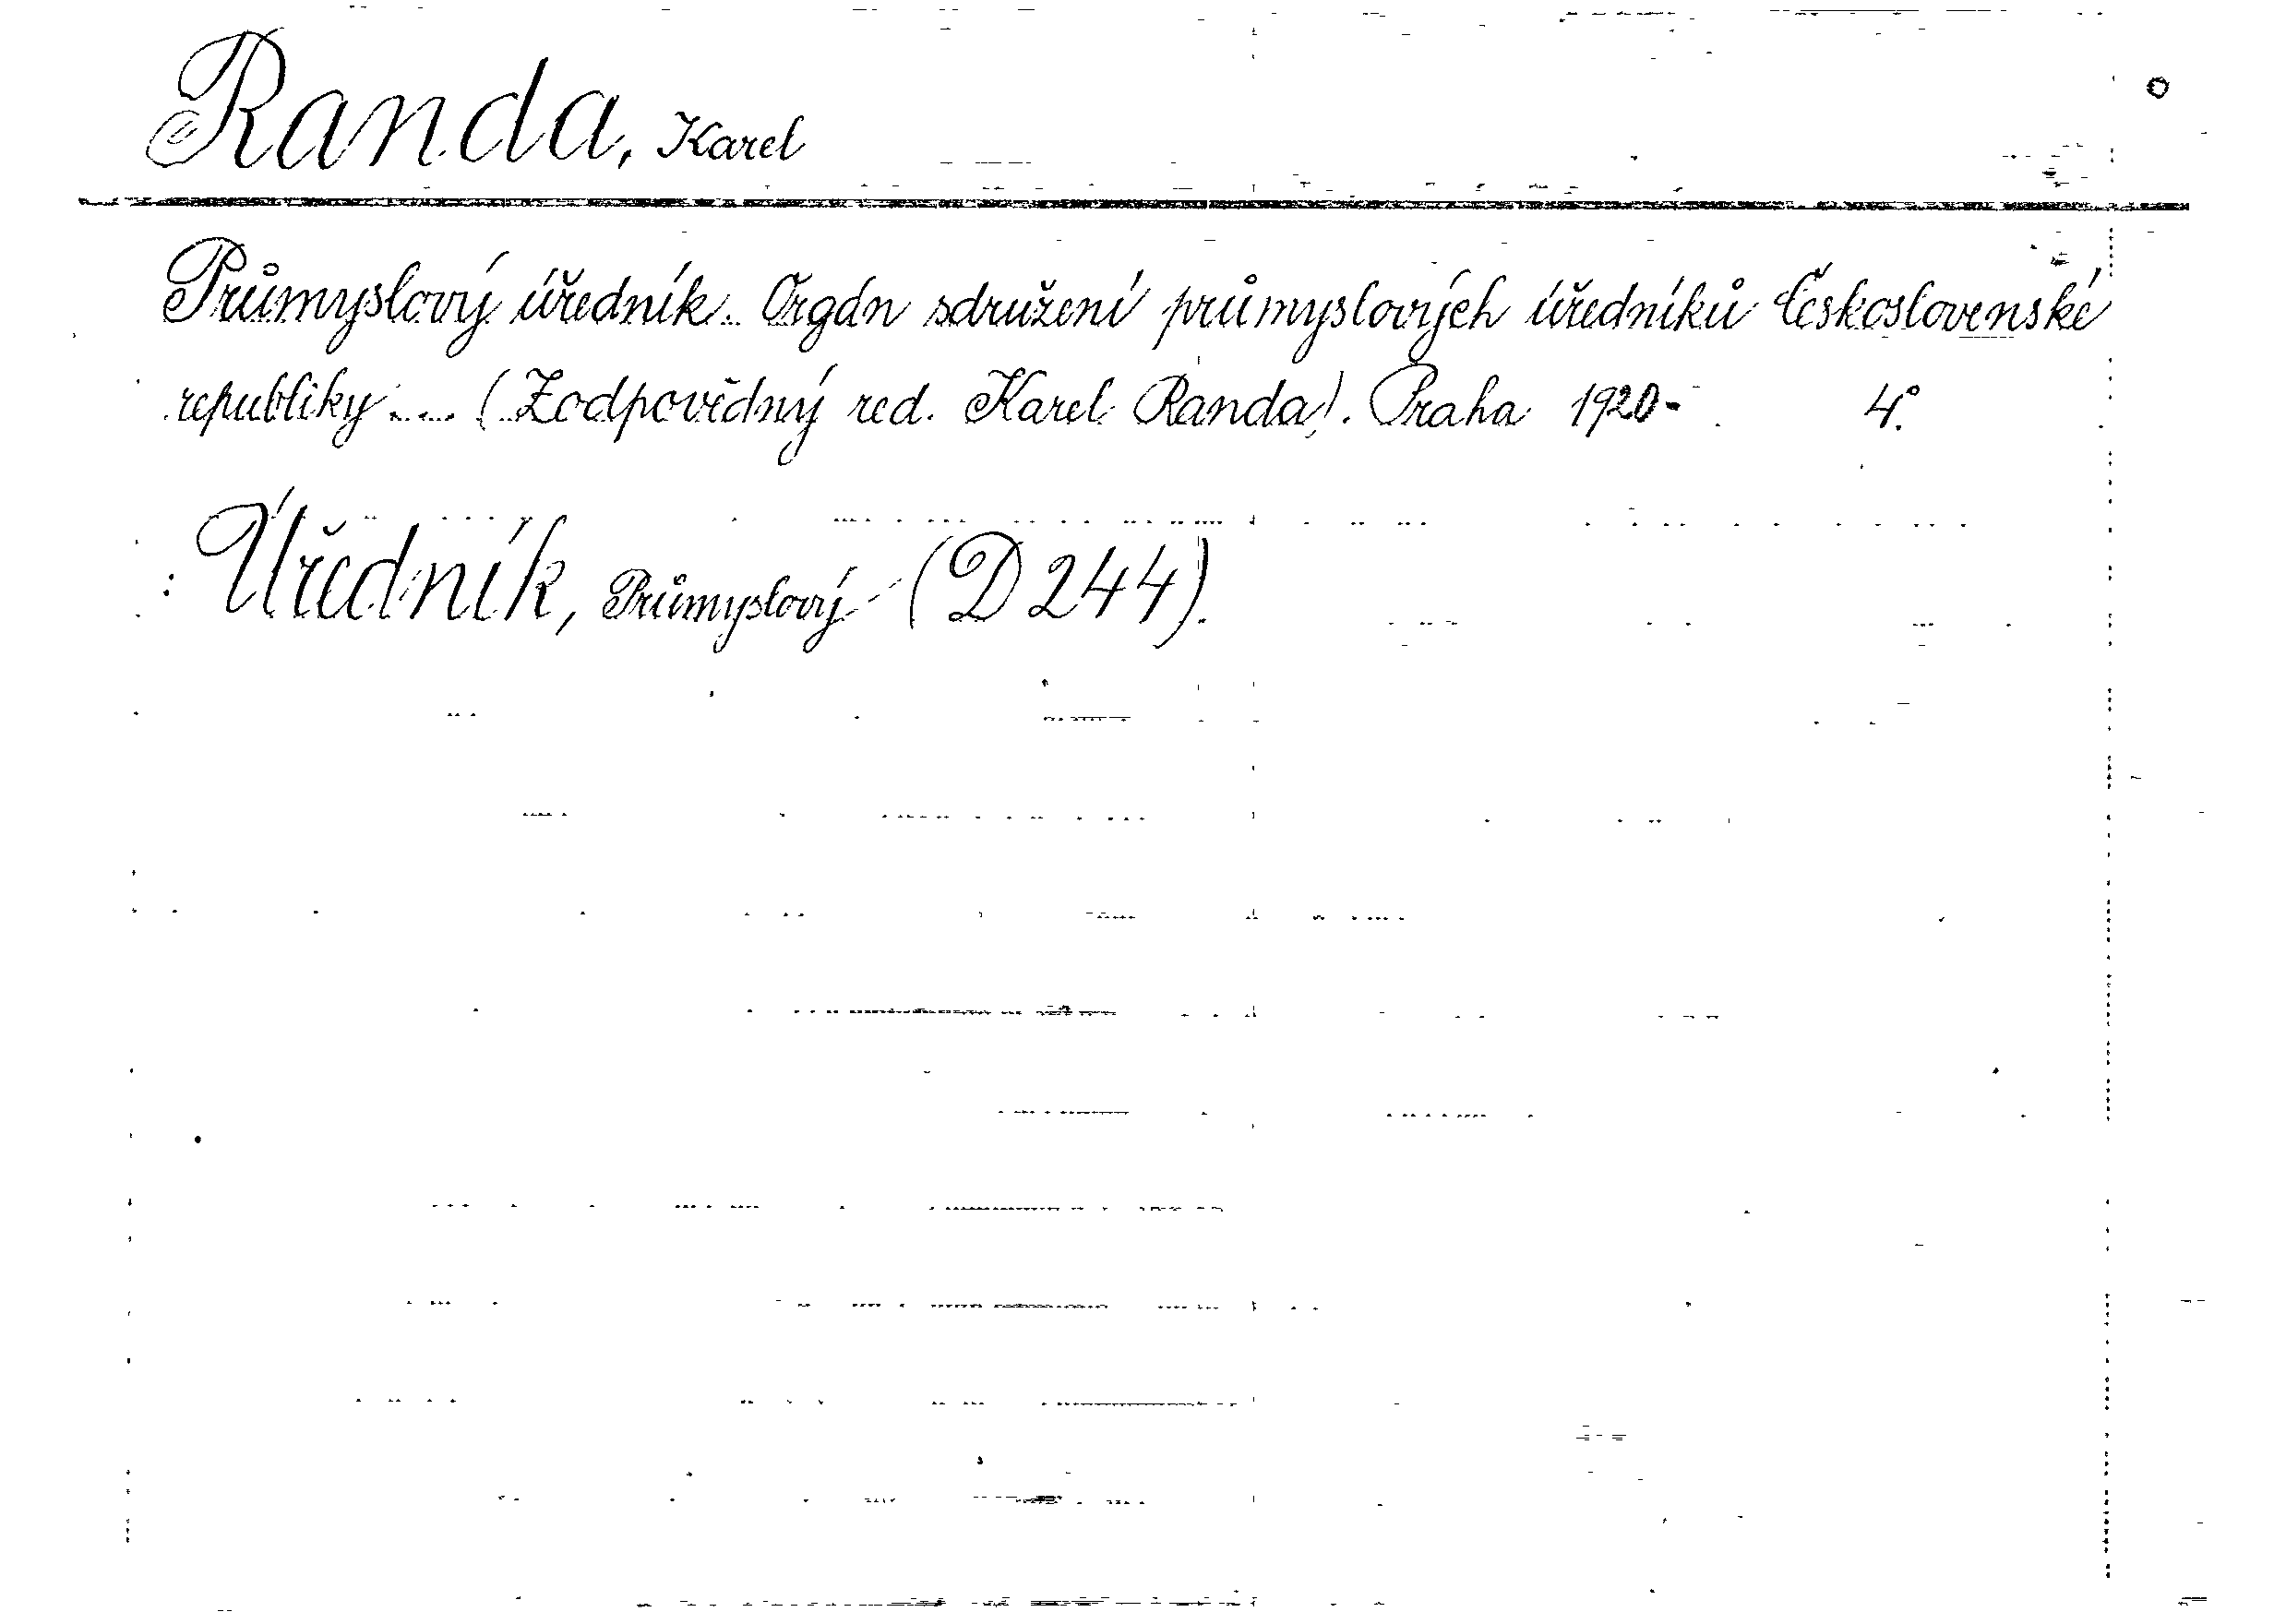 Randa, Karel
Průmyslový úředník. Orgán sdružení průmyslových úředníků Československé
republiky.... (Zodpovědný red. Karel Randa). Praha 1920- 4°.
Úředník, Průmyslový (D 244).